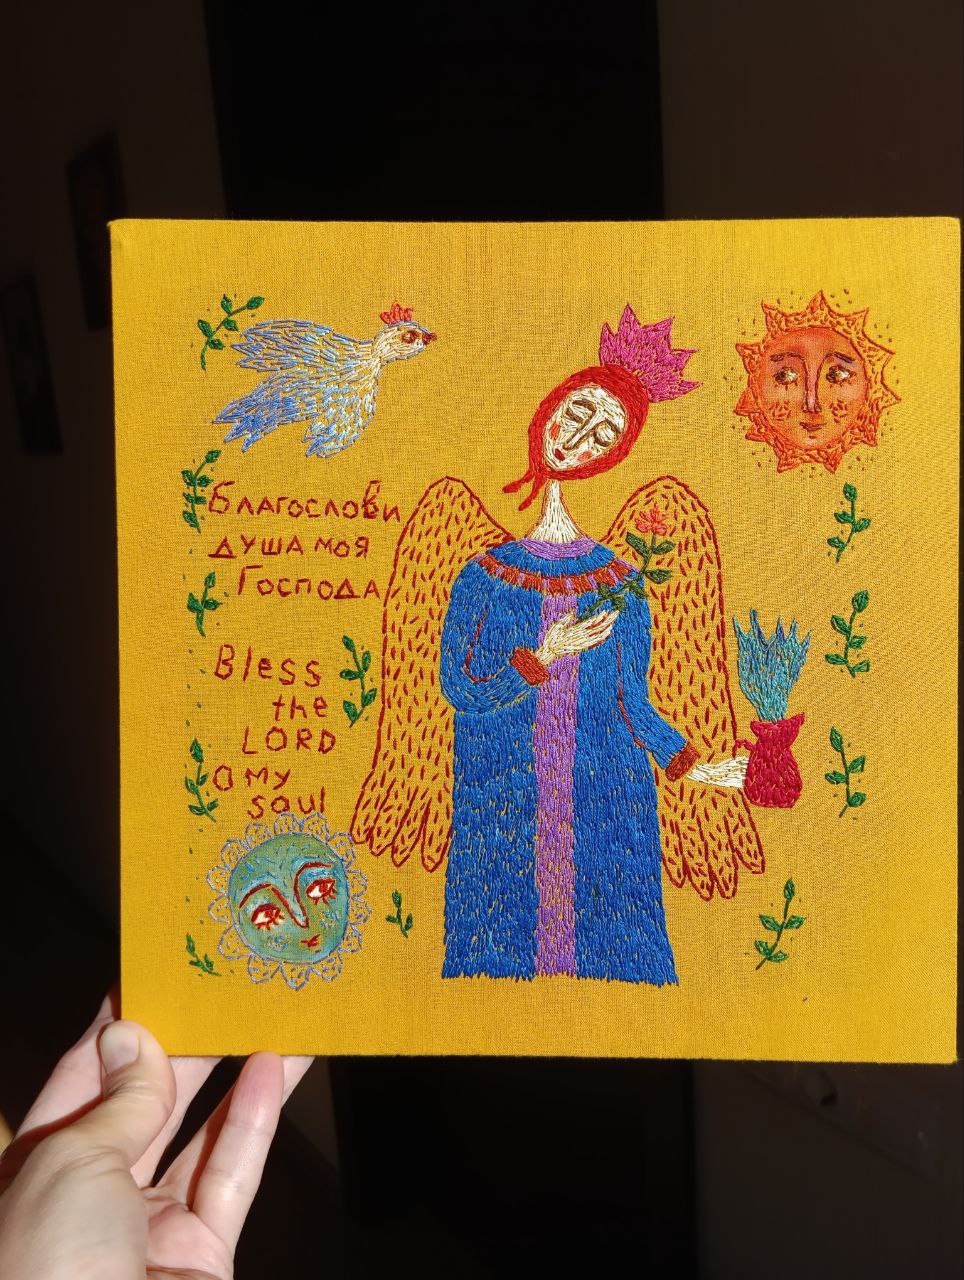 Благослови
душа моя
Господа
Bless
the
LORD
O my
soul